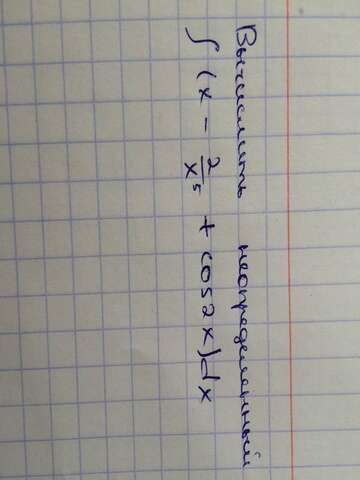 Вычислить неопределенный
∫ (x - 2/x⁵ + cos2x)dx